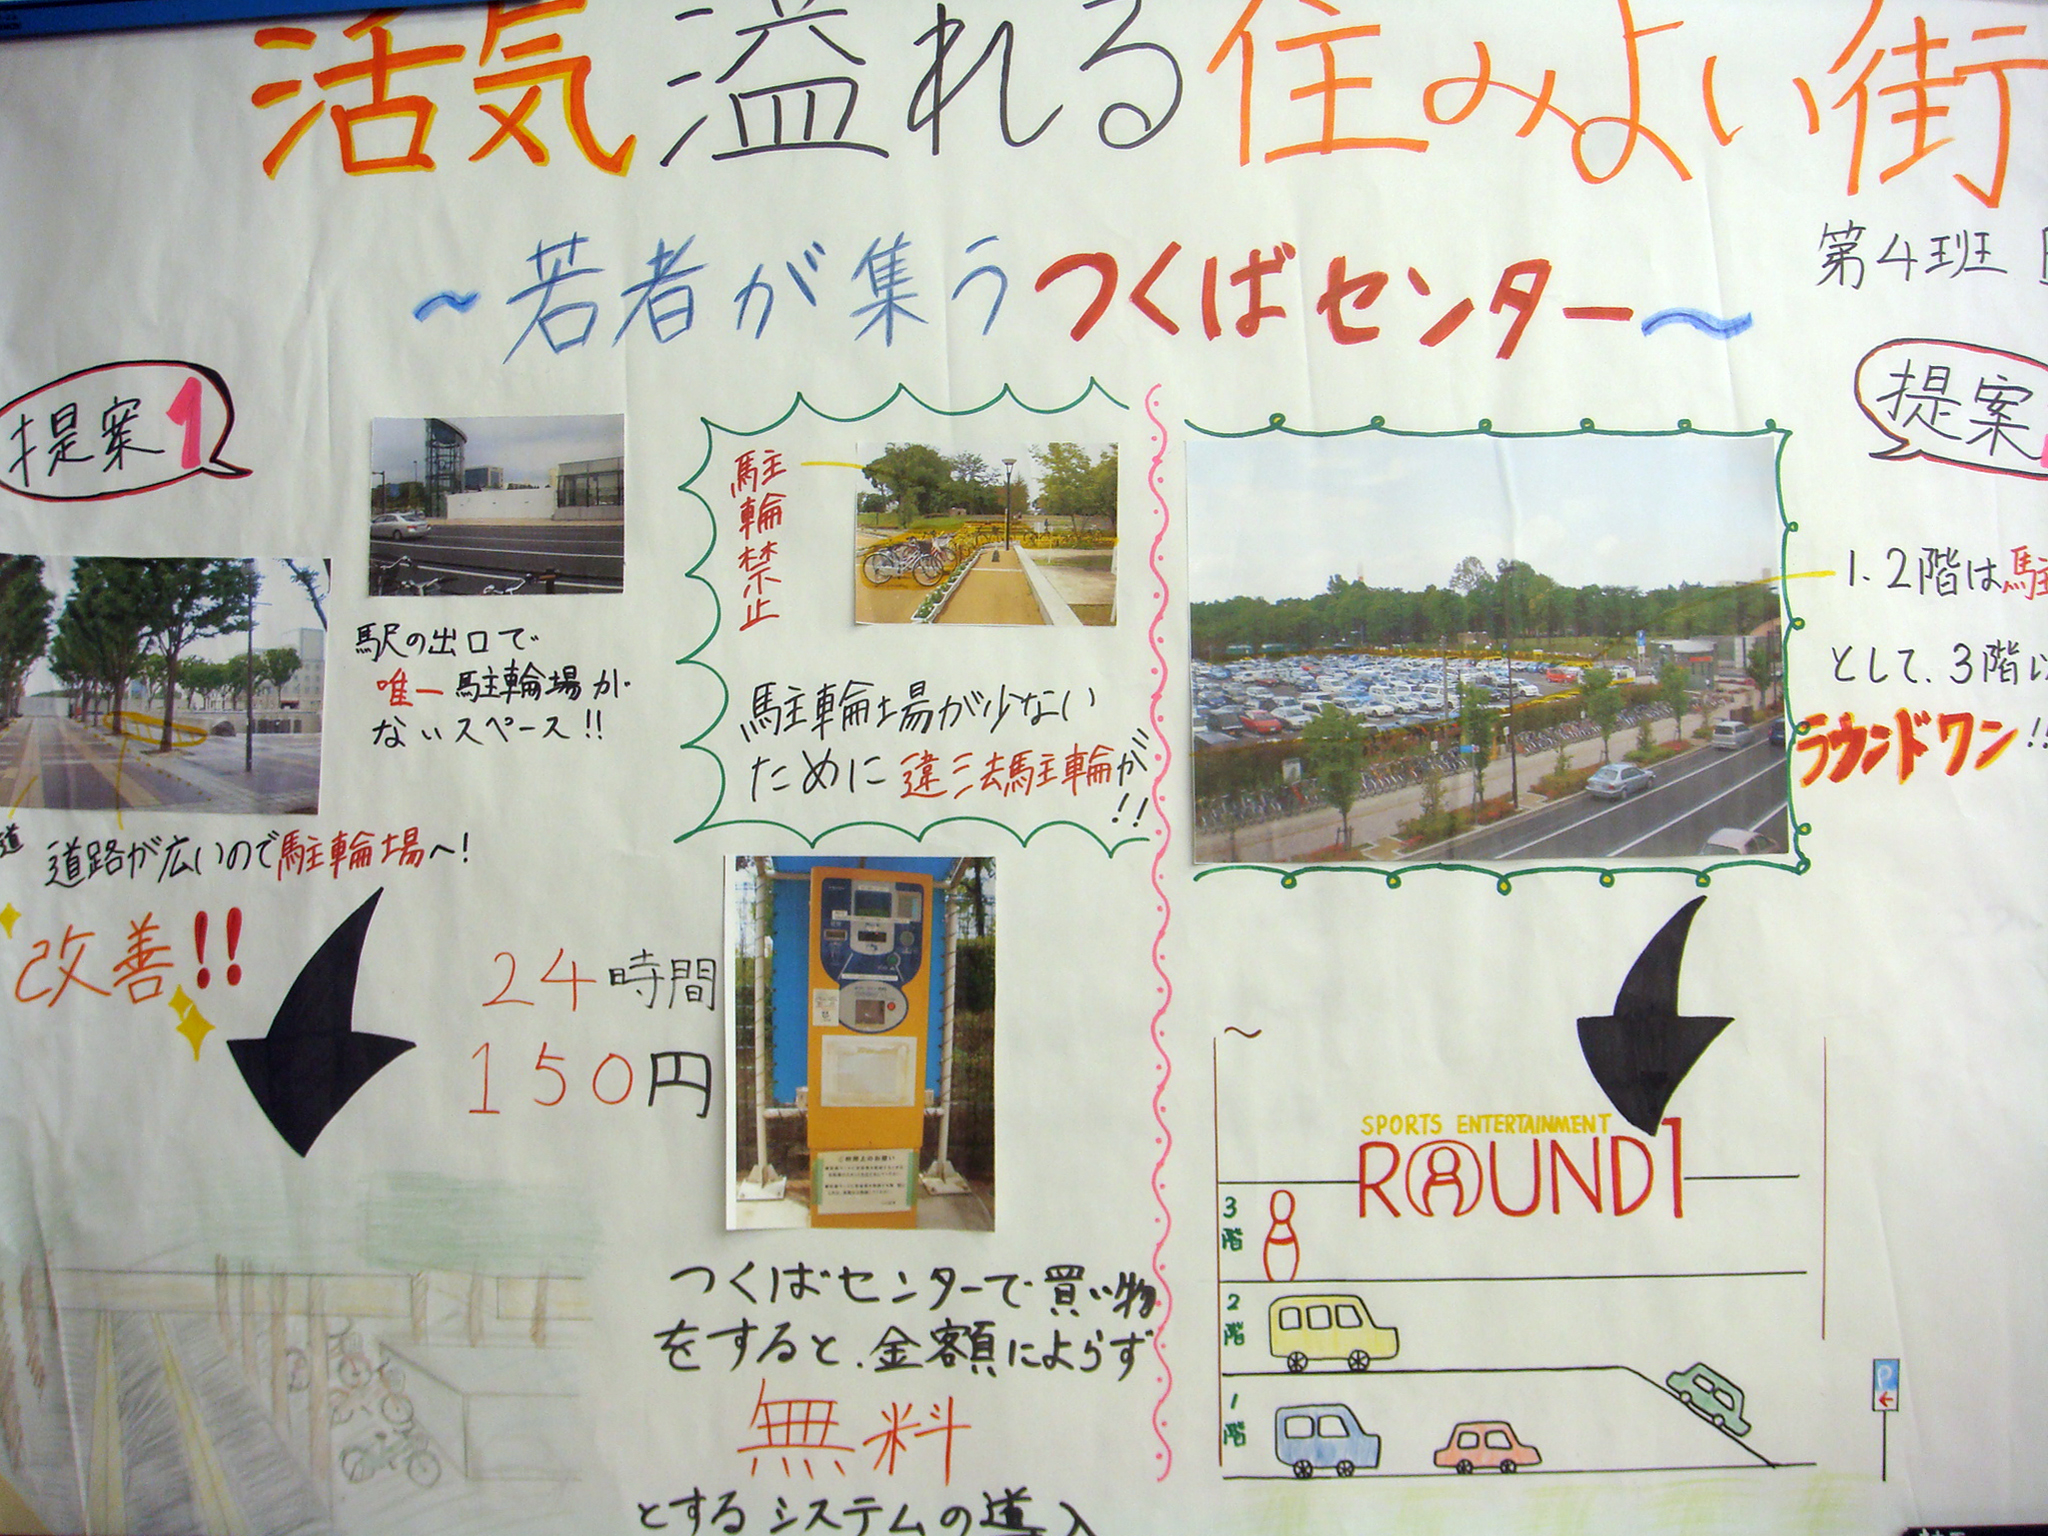 活気溢れる住みよい街
～若者が集うつくばセンター～
第4班
提案1
駅の出口で
唯一駐輪場が
ないスペース!!
道
道路が広いので駐輪場へ!
改善!!
駐輪禁止
駐輪場が少ない
ために違法駐輪が!!
24時間
150円
つくばセンターで買い物
をすると、金額によらず
無料
とするシステムの導入
提案
1、2階は駐
として、3階以
ラウンドワン!!
～
SPORTS ENTERTAINMENT
ROUND1
3階
2階
1階
P